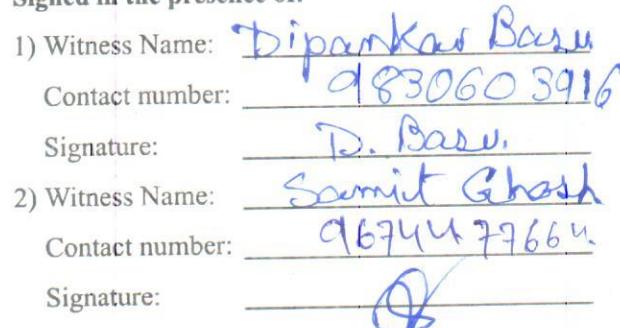 Signed in the presence of:
1) Witness Name: Dipankar Basu
Contact number: 9830603916
Signature: D. Basu.
2) Witness Name: Samit Ghosh
Contact number: 9674477664
Signature: